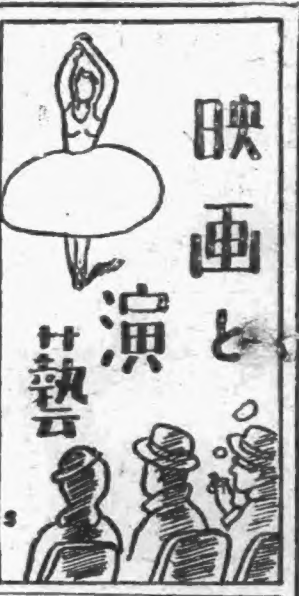 映画と
演藝
s